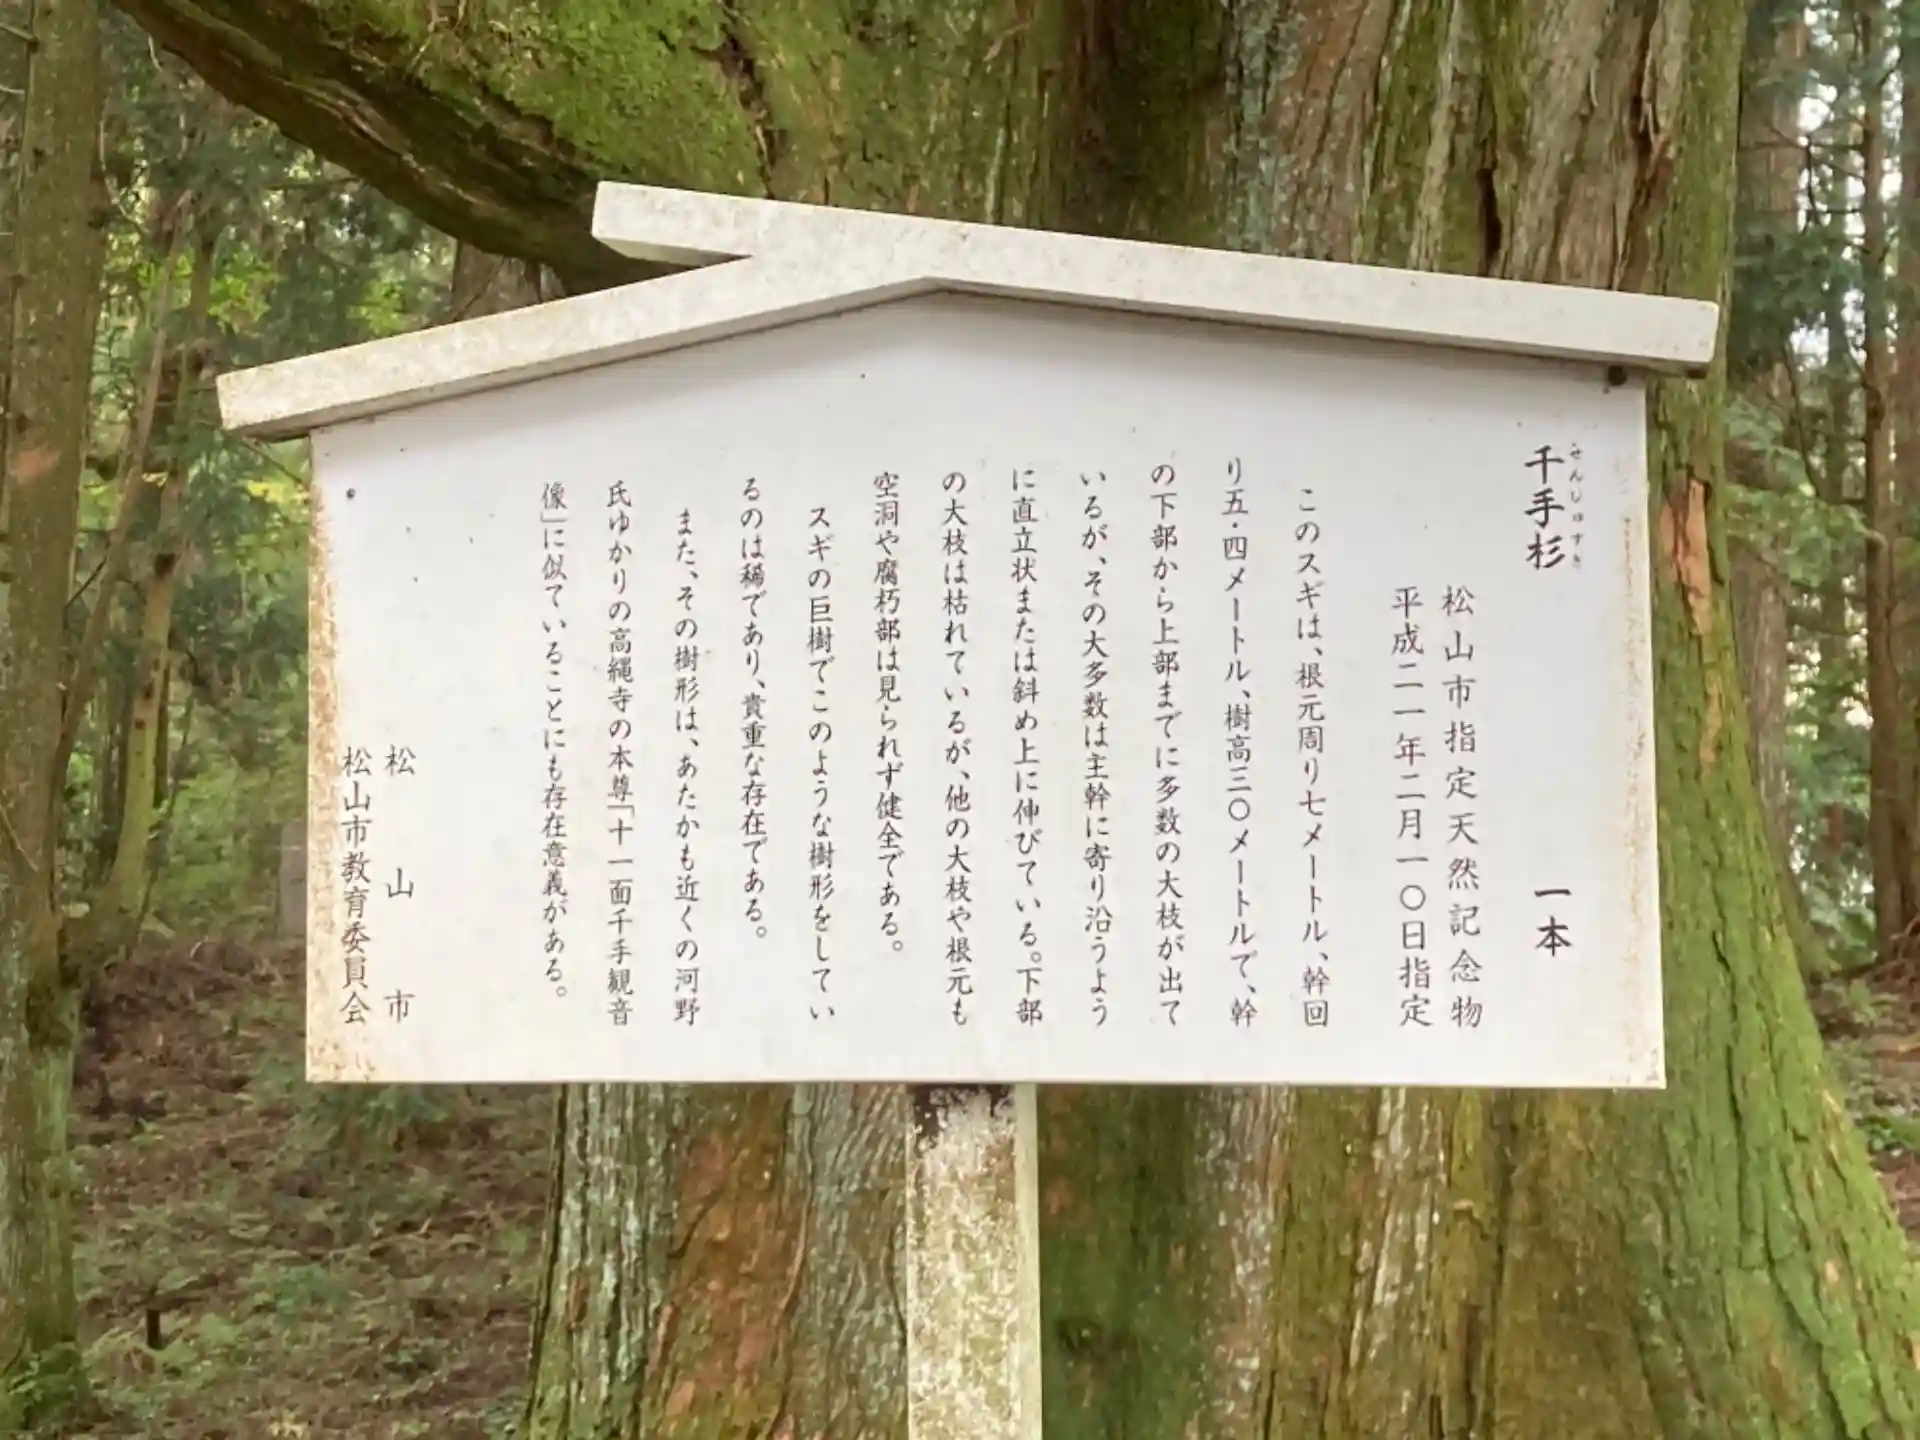 千手杉 一本
せんじゅすぎ
松山市指定天然記念物
平成二一年二月一〇日指定
このスギは、根元周り七メートル、幹回
り五・四メートル、樹高三〇メートルで、幹
の下部から上部までに多数の大枝が出て
いるが、その大多数は主幹に寄り沿うよう
に直立状または斜め上に伸びている。下部
の大枝は枯れているが、他の大枝や根元も
空洞や腐朽部は見られず健全である。
スギの巨樹でこのような樹形をしてい
るのは稀であり、貴重な存在である。
また、その樹形は、あたかも近くの河野
氏ゆかりの高縄寺の本尊「十一面千手観音
像」に似ていることにも存在意義がある。
松山市
松山市教育委員会